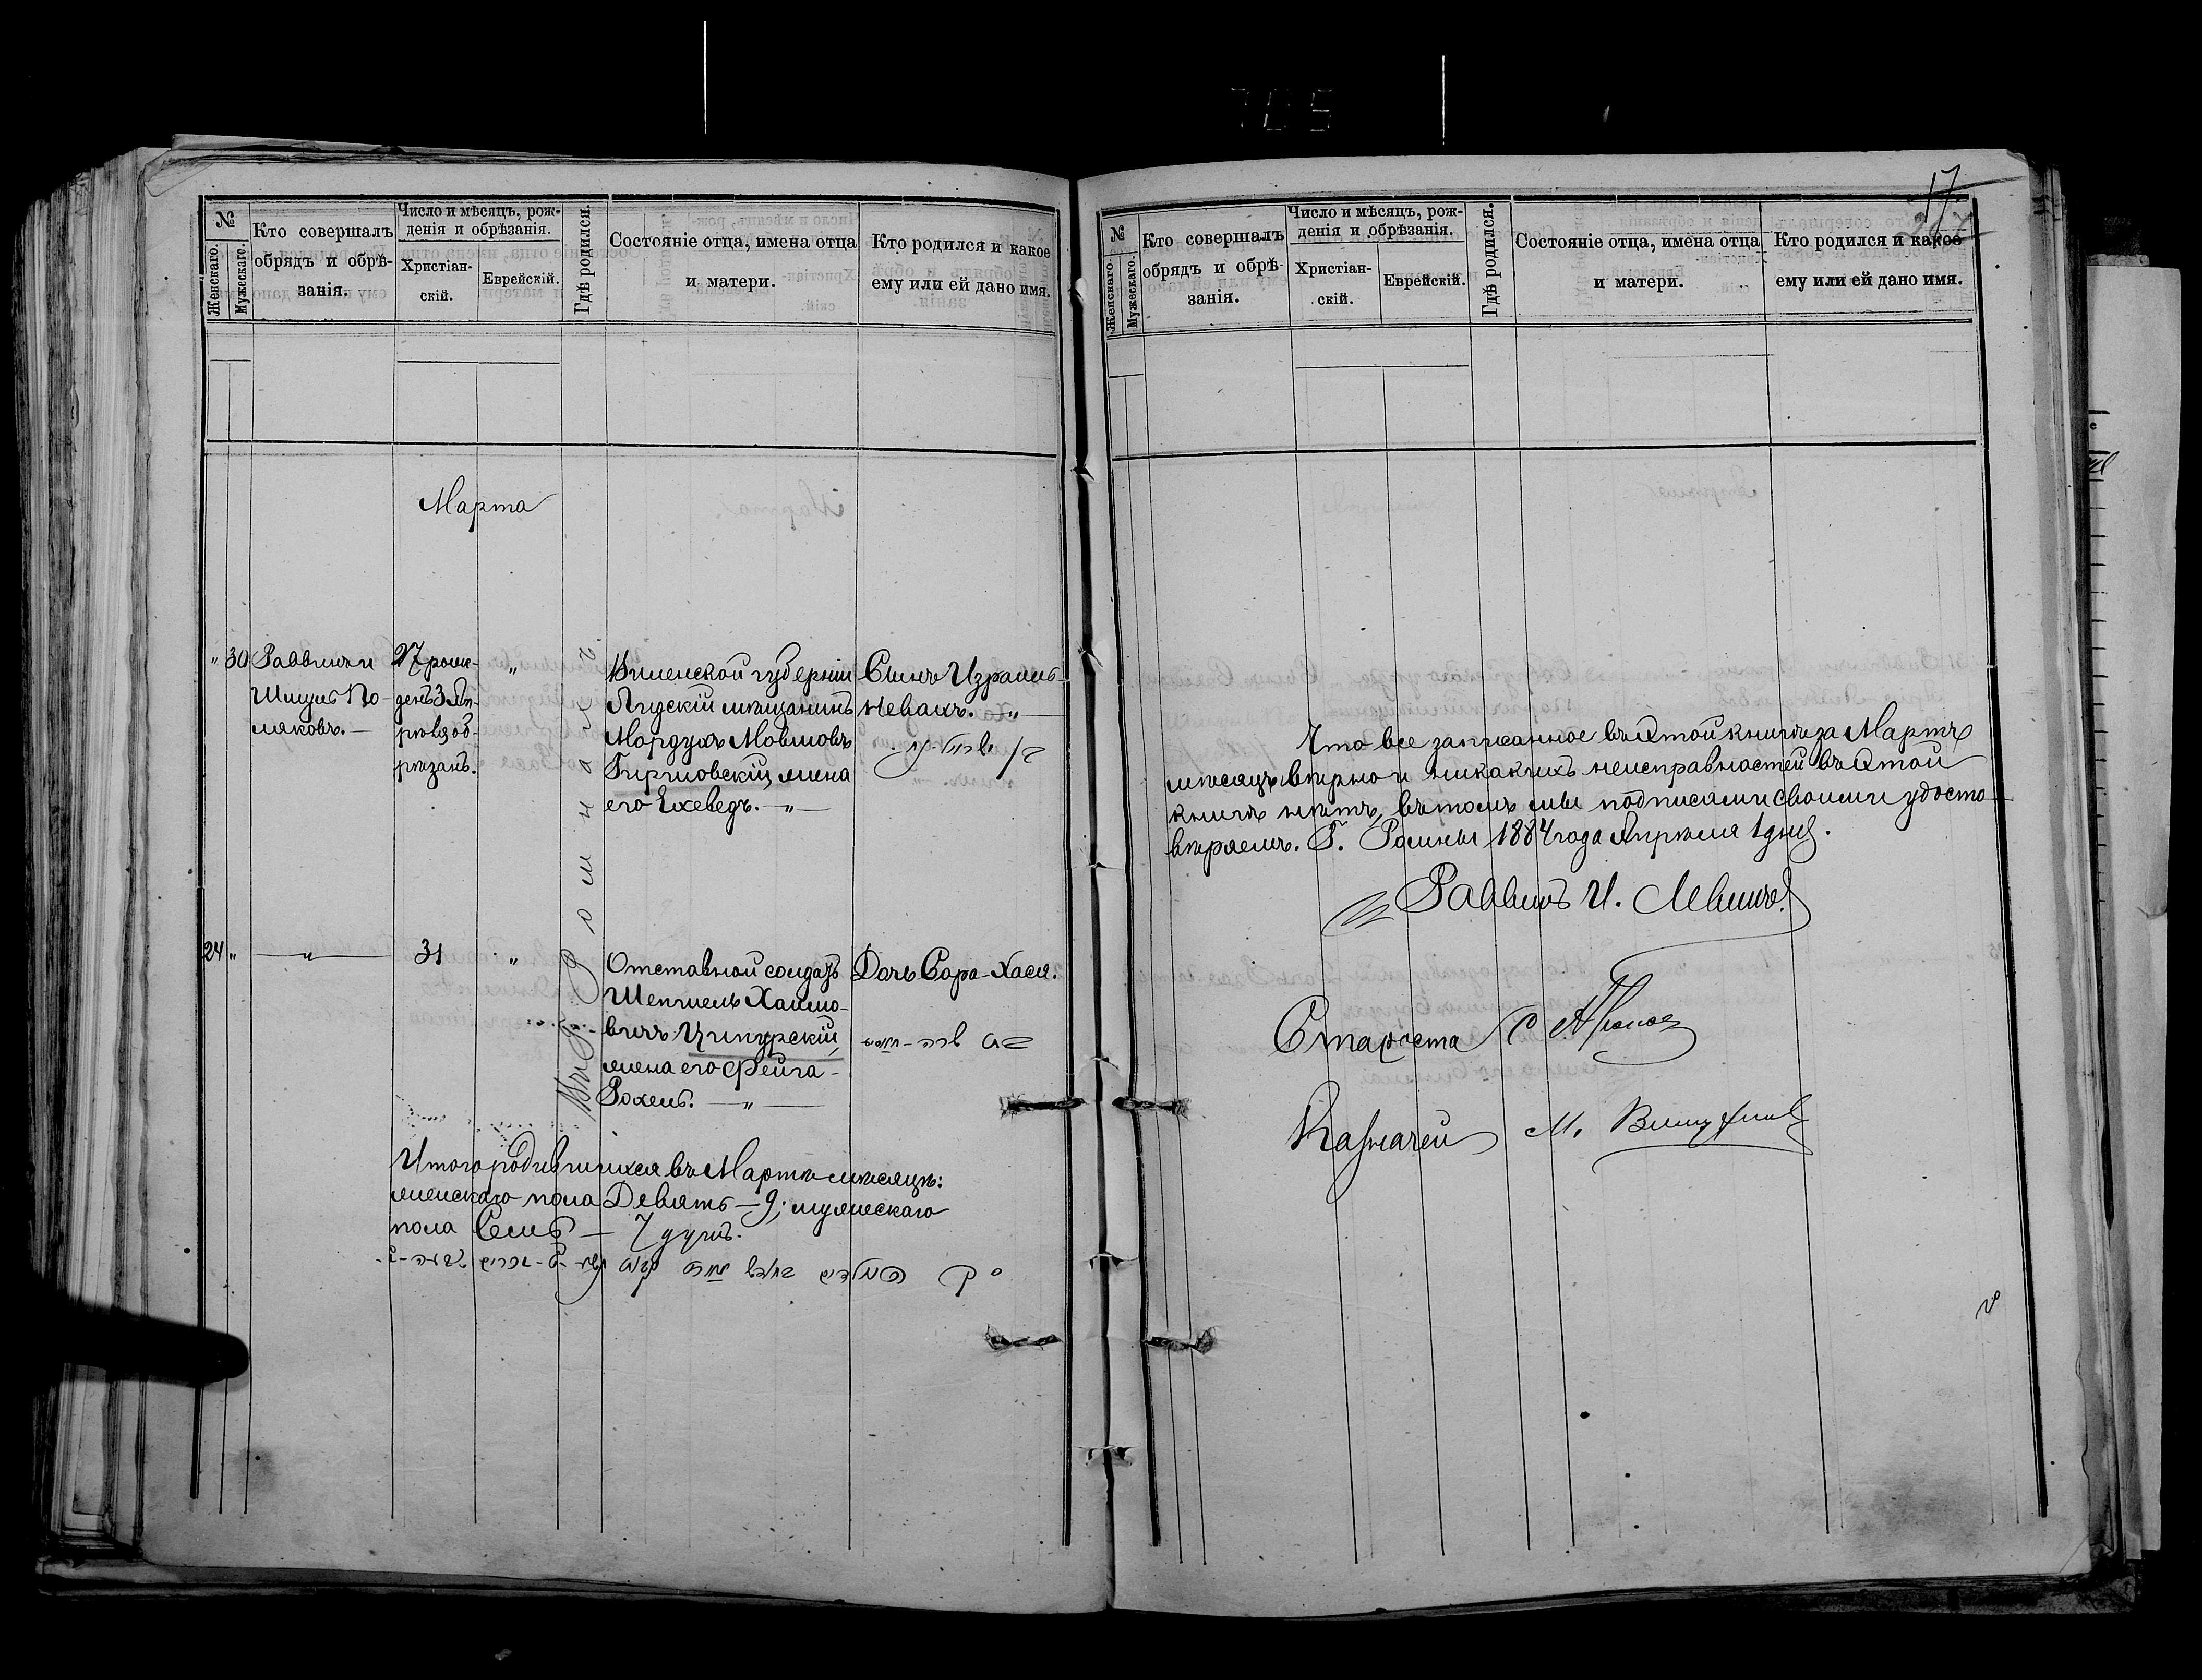 705
№
Женскаго.
Мужескаго.
Кто совершалъ
обрядъ и обрѣ-
занія.
Число и мѣсяцъ, рож-
денія и обрѣзанія.
Христіан-
скій.
Еврейскій.
Гдѣ родился.
Состояніе отца, имена отца
и матери.
Кто родился и какое
ему или ей дано имя.
Марта
" 30
Раввинъ и
Шмуль По-
ляковъ. —
27 рож-
денъ 3 Ап-
рѣля об-
рѣзанъ.
"
Въ г. Ромнахъ
Виленской губерніи
Лидскій мѣщанинъ
Мордухъ Мовшовъ
Гиршовскій, жена
его Ехеведъ. — " —
Сынъ Израиль
Невахъ. — " —
24 "
— " —
31
"
Отставной солдатъ
Шепшель Хаимо-
вичъ Ципурскій,
жена его Фейга-
Рохель. — " —
Дочь Сора-Хася.
Итого родившихся въ Мартѣ мѣсяцѣ:
женскаго пола Девять — 9; мужескаго
пола Семь — 7 душъ.
17
№
Женскаго.
Мужескаго.
Кто совершалъ
обрядъ и обрѣ-
занія.
Число и мѣсяцъ, рож-
денія и обрѣзанія.
Христіан-
скій.
Еврейскій.
Гдѣ родился.
Состояніе отца, имена отца
и матери.
Кто родился и какое
ему или ей дано имя.
Что все записанное въ этой книгѣ за Мартъ
мѣсяцъ вѣрно и никакихъ неисправностей въ этой
книгѣ нѣтъ, въ томъ мы подписами своими удосто-
вѣряемъ. Г. Ромны 1884 года Апрѣля 1 дня.
Раввинъ И. Левинъ
Староста С
Казначей М.